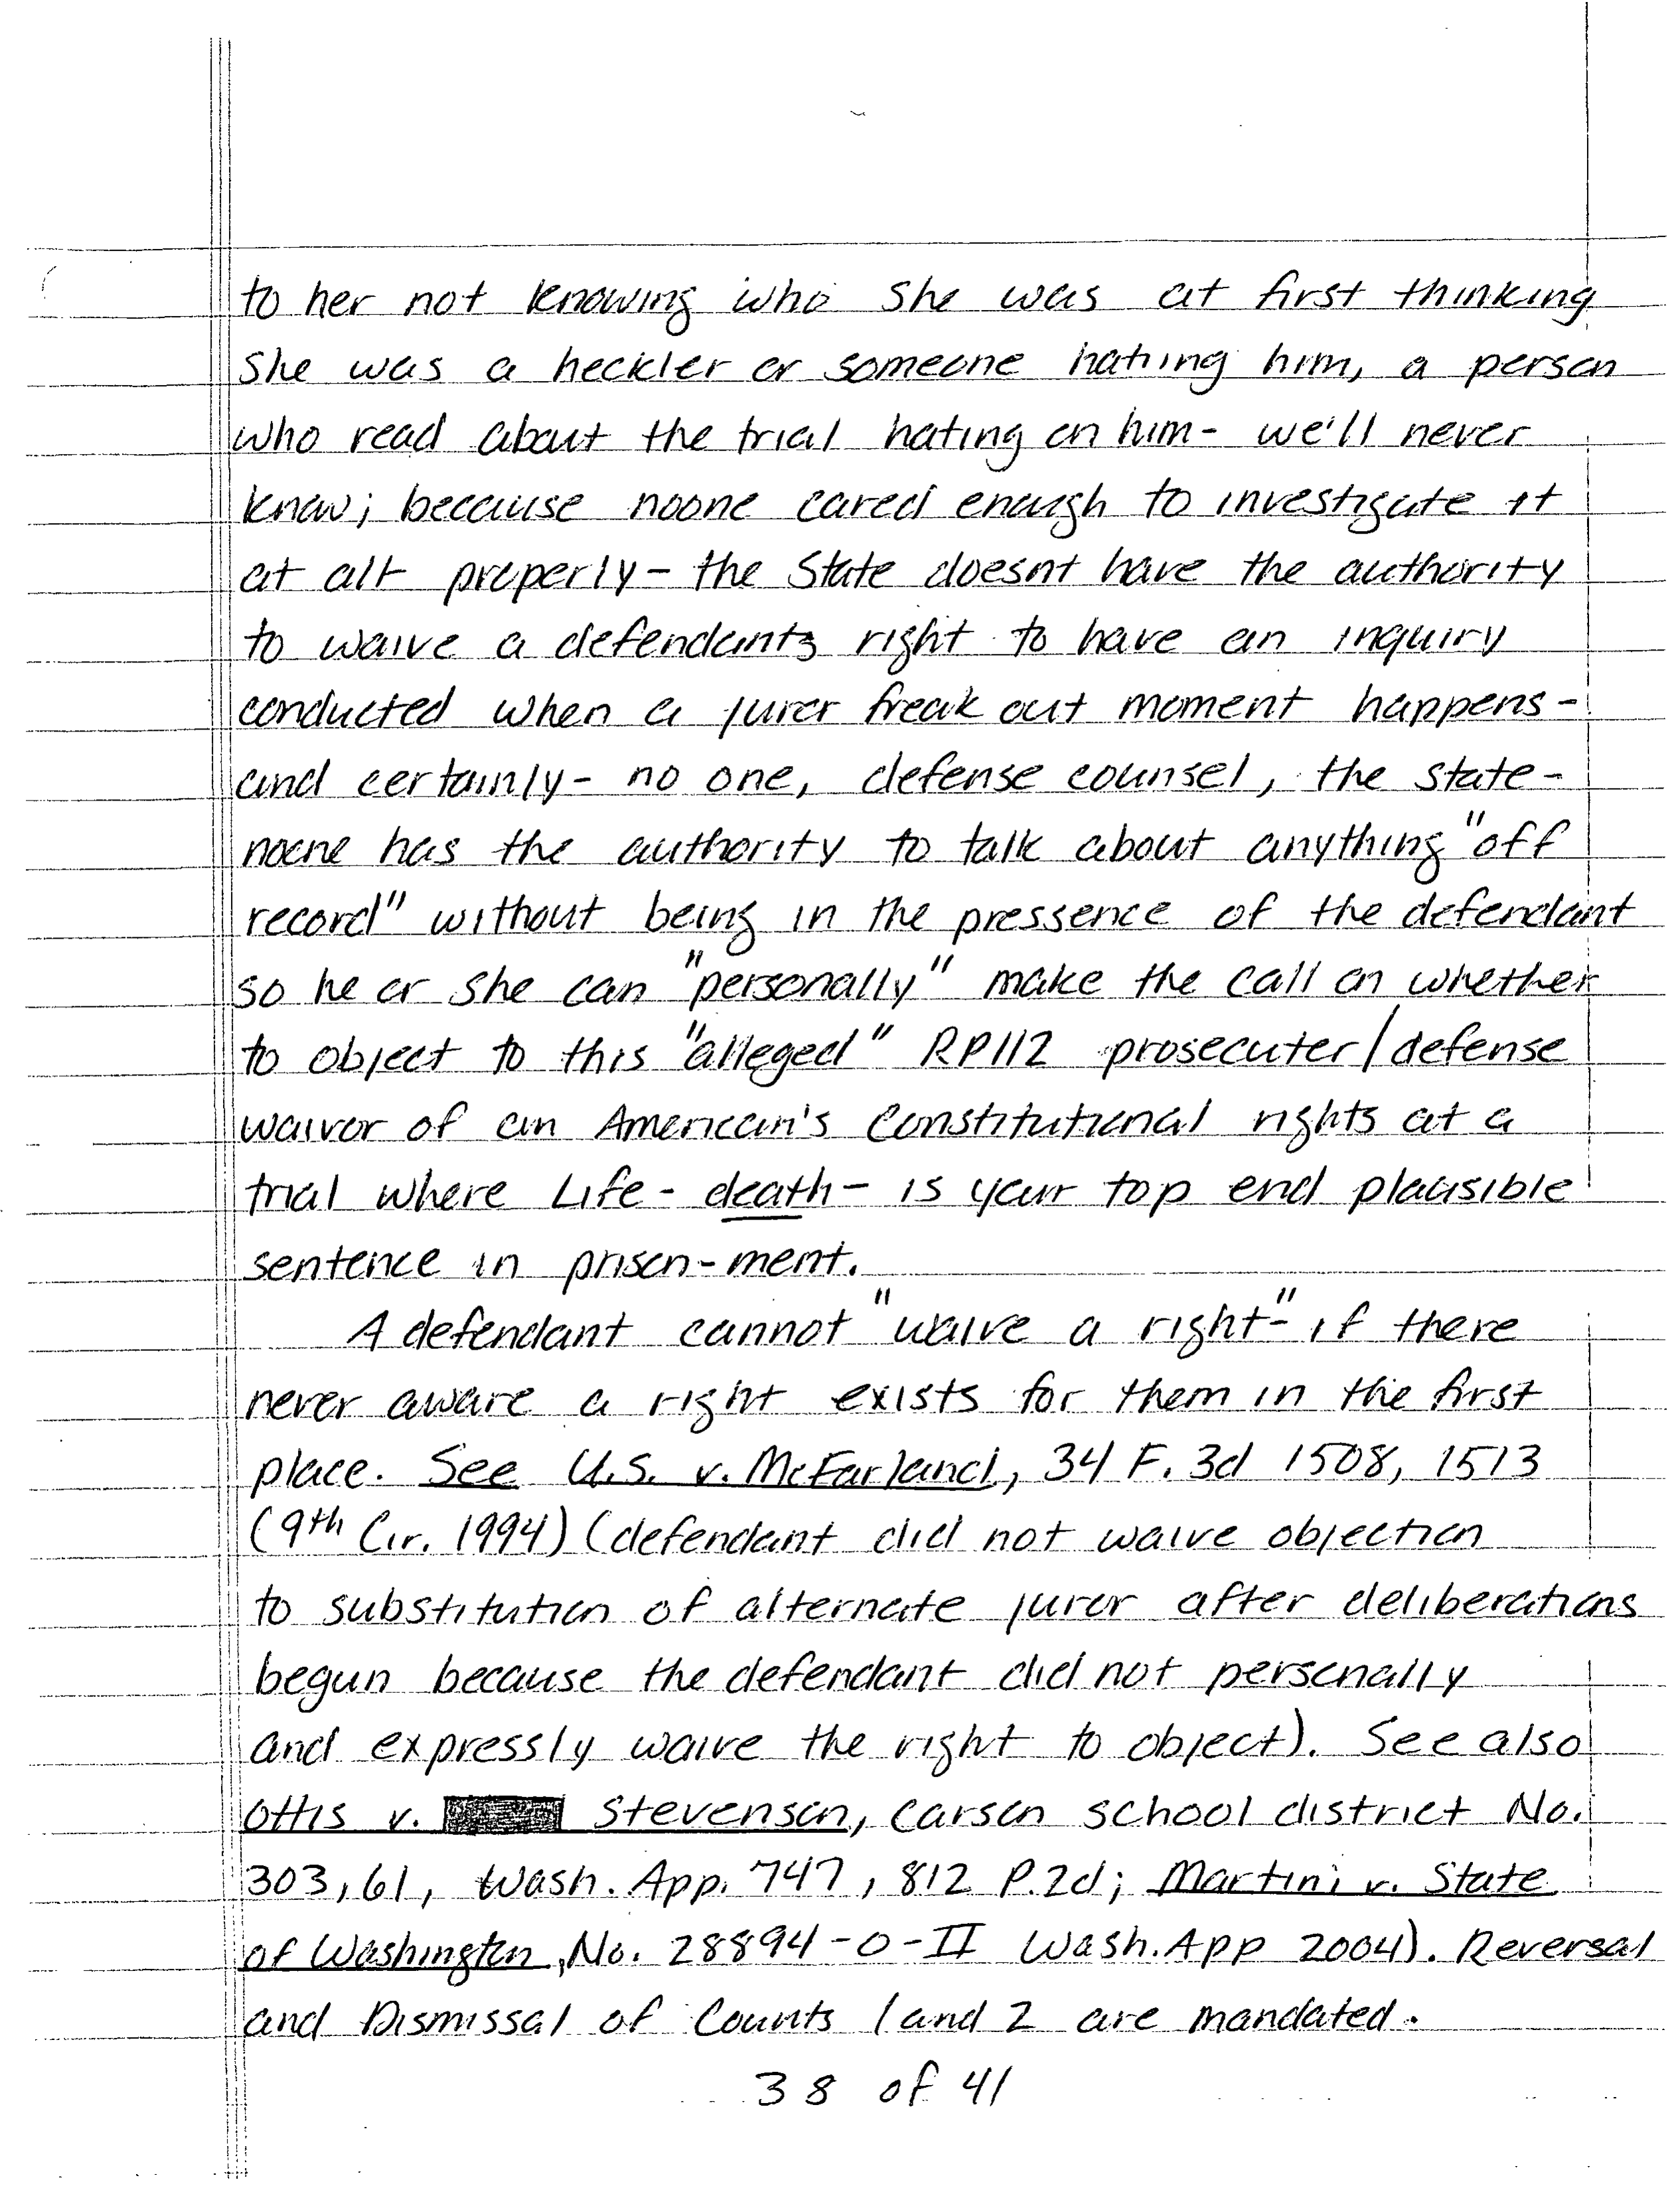 to her not knowing who she was at first thinking
she was a heckler or someone hatiing him, a person
who read about the trial hating on him- we'll never
know; because noone cared enough to investigate it
at all properly- the State doesnt have the authority
to waive a defendants right to have an inquiry
conducted when a juror freak out moment happens-
and certainly- no one, defense counsel, the state-
noone has the authority to talk about anything "off
record" without being in the pressence of the defendant
so he or she can "personally" make the call on whether
to object to this "alleged" RP112 prosecuter/defense
waivor of an American's Constitutional rights at a
trial where Life- death- is your top end plausible
sentence in prison-ment.
A defendant cannot "waive a right-" if there
never aware a right exists for them in the first
place. See U.S. v. McFarland, 34 F. 3d 1508, 1513
(9th Cir. 1994) (defendant did not waive objection
to substitution of alternate juror after deliberations
begun because the defendant did not personally
and expressly waive the right to object). See also
Ottis v. Stevenson, Carson school district No.
303, 61, Wash. App. 747, 812 P.2d; Martini v. State
of Washington, No. 28894-0-II Wash.App 2004). Reversal
and Dismissal of Counts 1 and 2 are mandated.
38 of 41